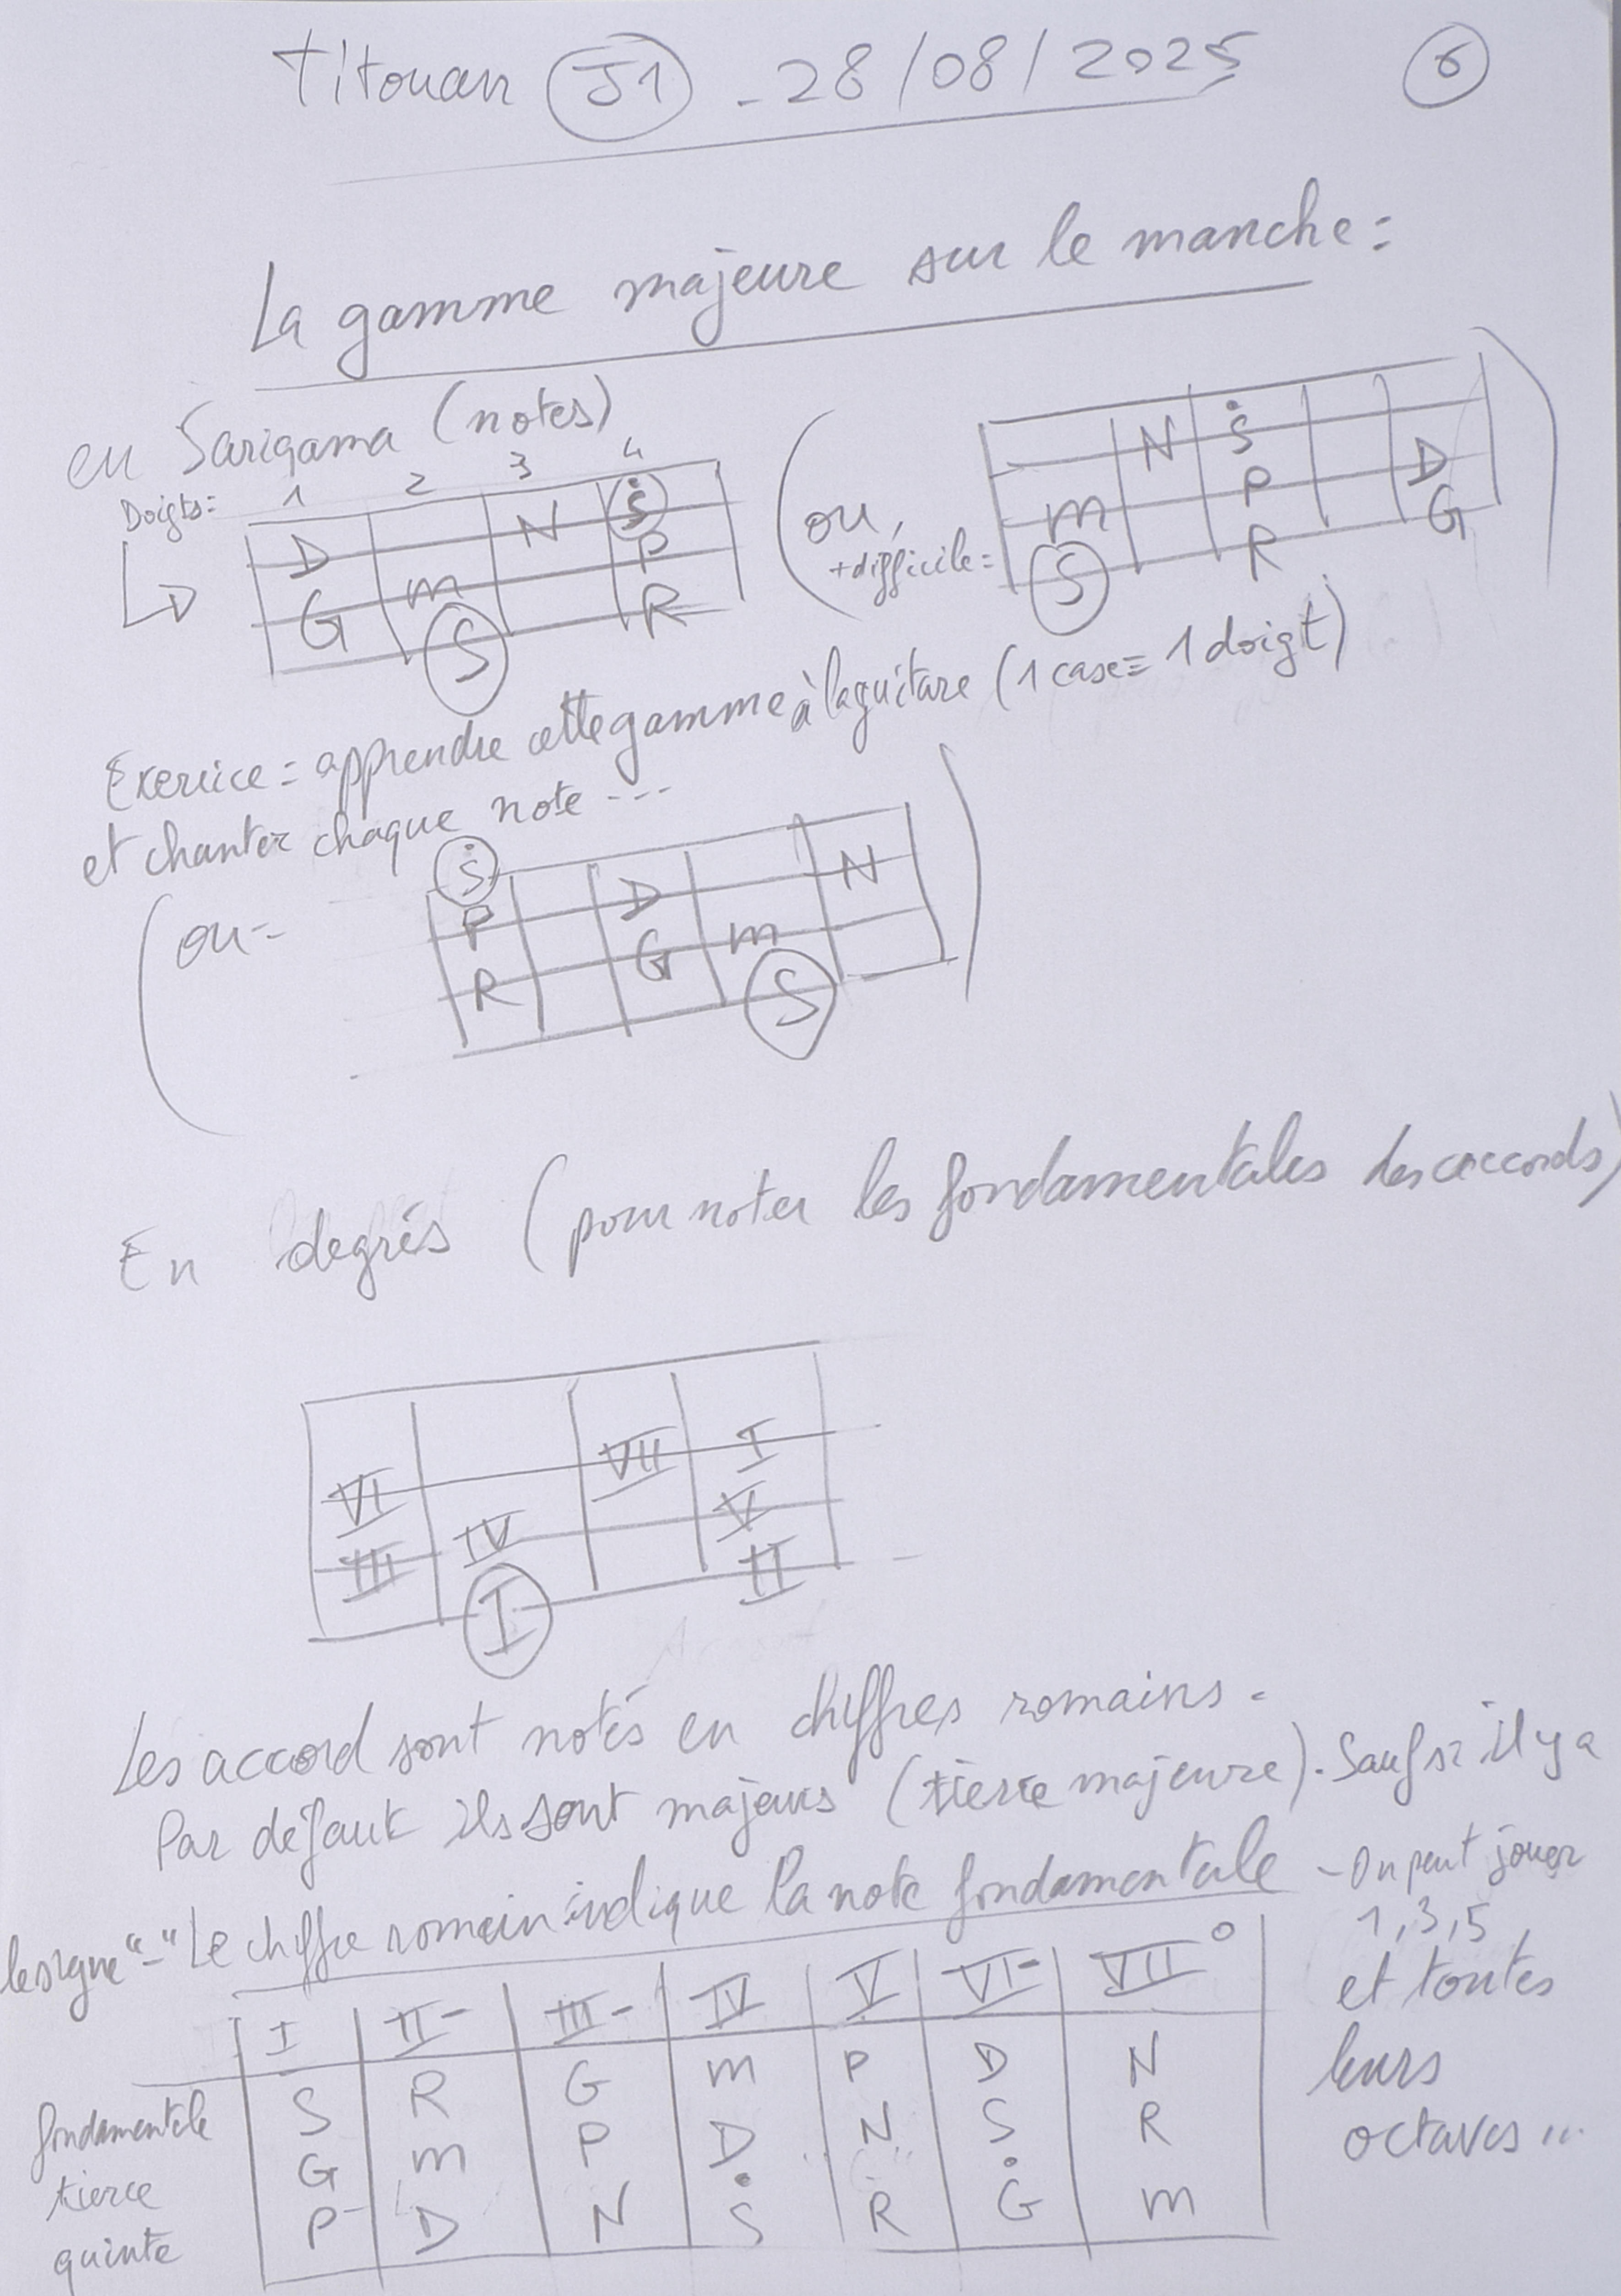 Titouan J1 - 28/08/2025 6
La gamme majeure sur le manche :
en Sarigama (notes)
Doigts: 1 2 3 4
D N Ṡ
G m P
S R
(ou, + difficile =
N Ṡ
m P D
S R G)
Exercice = apprendre cette gamme à la guitare (1 case = 1 doigt)
et chanter chaque note ...
(ou =
Ṡ
P D N
R G m
S)
En degrés (pour noter les fondamentales des accords)
VI VII I
III IV V
I II
Les accord sont notés en chiffres romains.
Par défaut ils sont majeurs (tierce majeure). Sauf si il y a
le signe "-" Le chiffre romain indique la note fondamentale - On peut jouer
1, 3, 5,
et toutes
leurs
octaves ...
I II- III- IV V VI- VII°
fondamentale S R G m P D N
tierce G m P D N S R
quinte P D N Ṡ R Ġ m